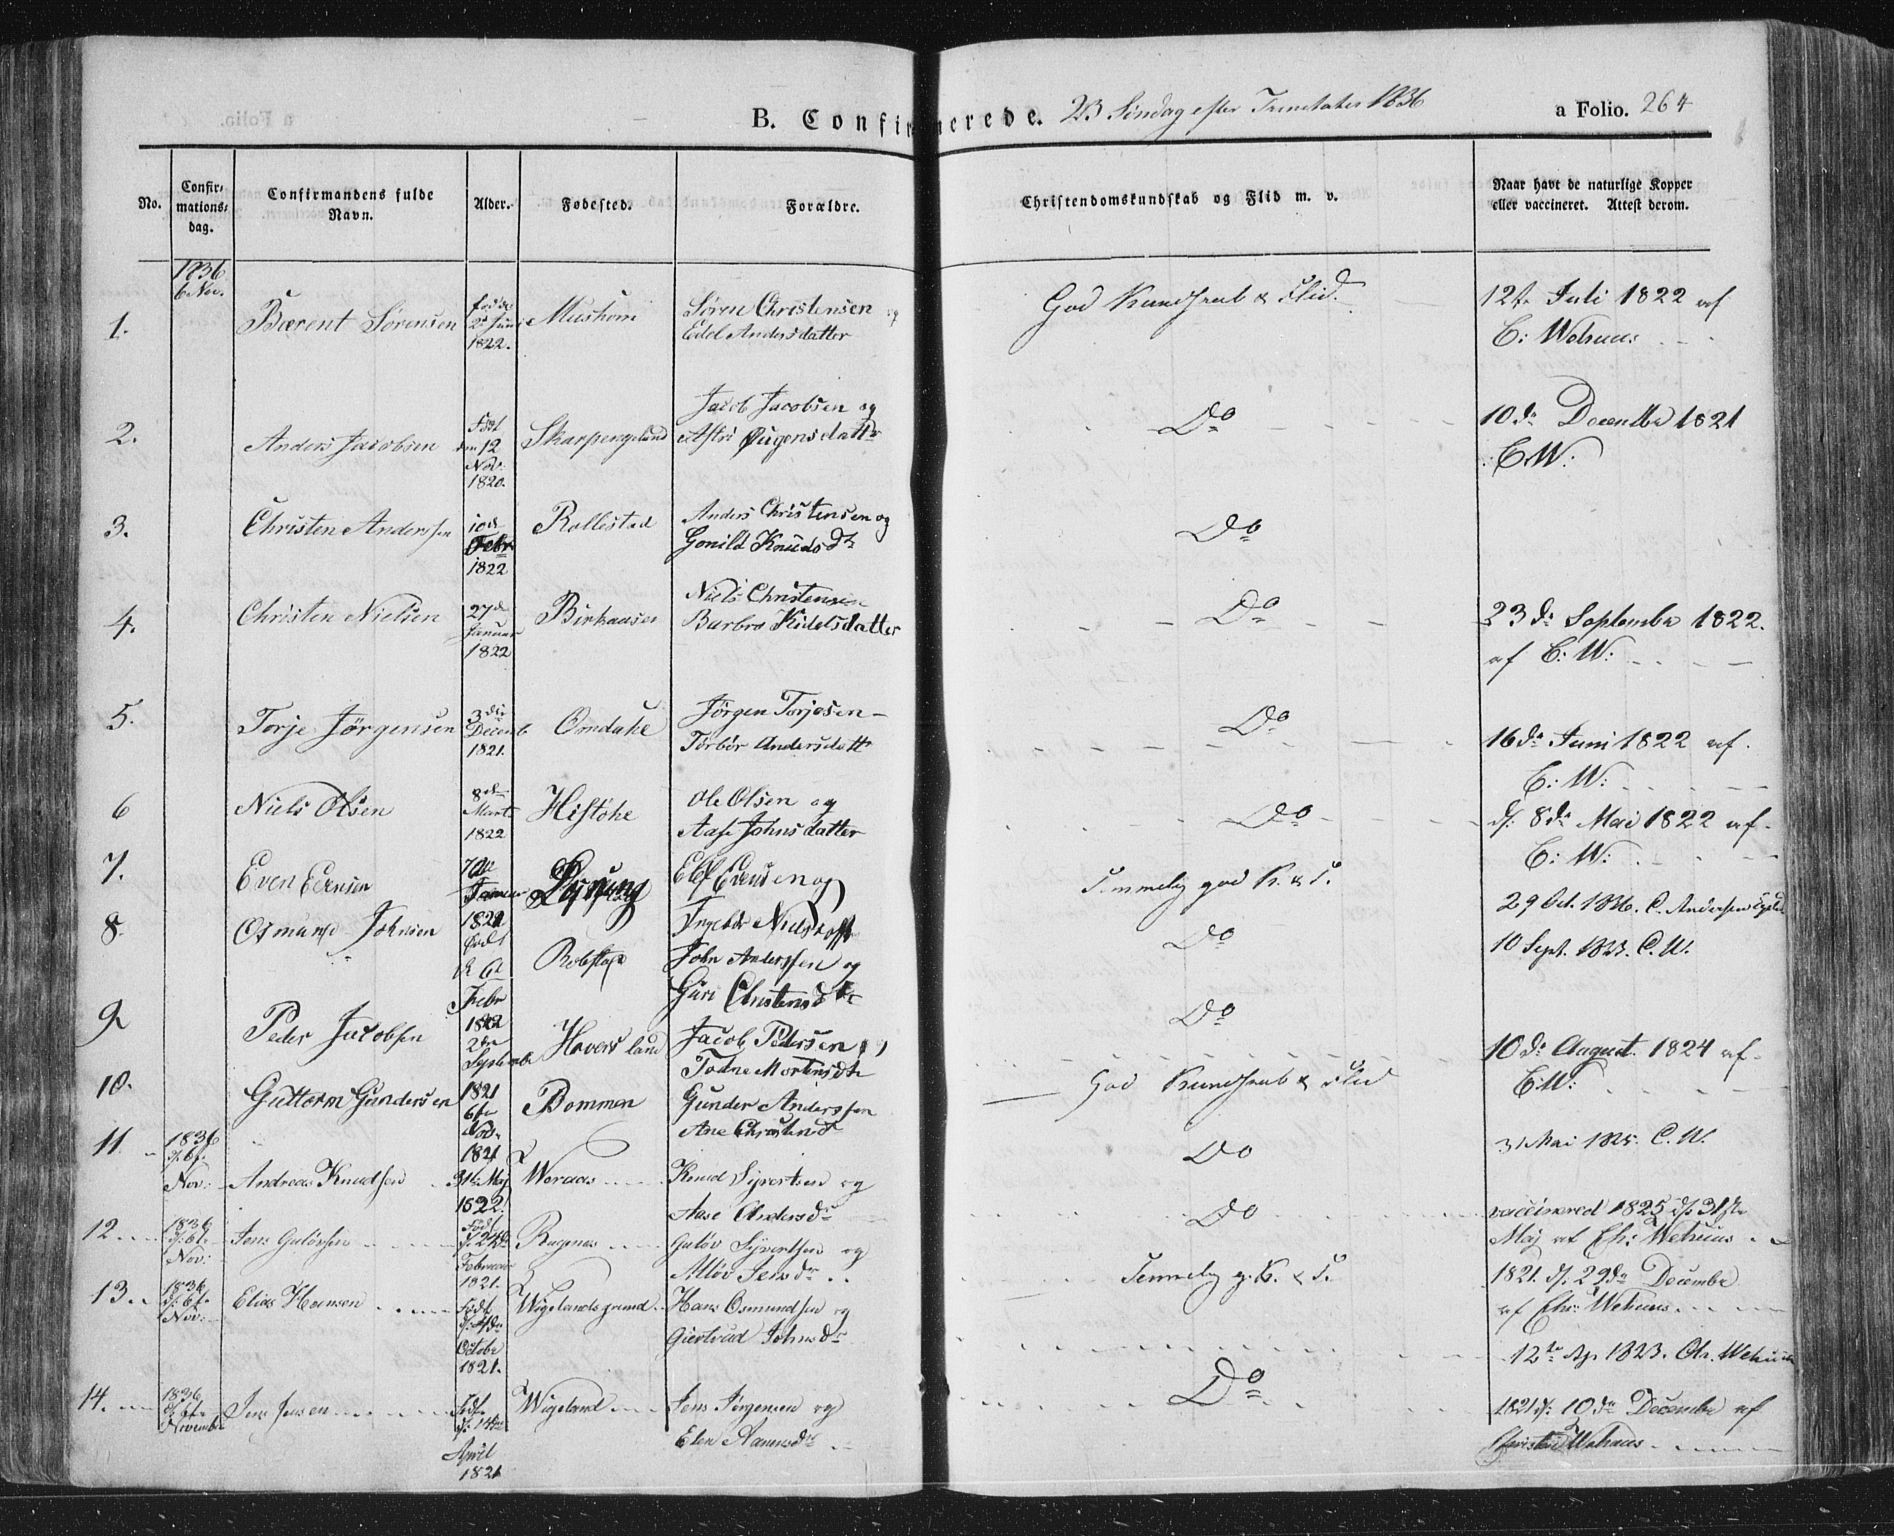 B. Confirmerede. 23 Søndag efter Trinitatis 1836
a Folio. 264
No.
Confir-
mations-
dag.
Confirmandens fulde
Navn.
Alder.
Fødested.
Forældre.
Christendomskundskab og Flid m. v.
Naar havt de naturlige Kopper
eller vaccineret. Attest derom.
1836
6 Nov.
1. Bærent Sørensen
1822.
Søren Christensen og
Edel Andersdatter
God Kundskab & Flid.
12te Juli 1822 af
C: Wehuus
2. Anders Jacobsen
Født
den 12
Nov:
1820.
Skarpengeland
Jacob Jacobsen og
Astri Øugensdattr
Do
10de Decembe 1821
C.W:
3. Christen Anderssen
10de
Febr
1822
Rollestad
Anders Christensen og
Gonild Knudsdtr
Do
4. Christen Nielsen
27de
Januar
1822
Birkaasen
Niels Christensen
Barbro Kidelsdatter
Do
23de Septembe 1822.
af C: W:
5. Torje Jørgensen
3die
Decemb
1821.
Omdahl
Jörgen Torjesen
Torbor Andersdatt
Do
16de Juni 1822 af
C: W:
6 Niels Olsen
8de
Mart
1822
Ole Olsen og
Aase Johnsdatter
Do
d. 8de Mai 1822 af
C: W:
7. Even
1822
Evensen og
Temmelig god K. & F.
29 Oct. 1836. C. Andersen
8. Osmund Johnsen
Født
d. 6t
Febr
1822
Robstad
John Anderssen og
Guri Christensdtr
Do
10 Sept. 1823. C. W.
9 Peder Jacobsen
2den
Septembe
1821
Haversland
Jacob Pedersen og
Todne Mortensdtr
Do
10de August. 1824 af
C:W:
10. Guttorm Gundersen
6te
Nov.
1821
Bommen
Gunder Anderssen
Ane Christensd
God Kundskab & Flid
31 Mai 1825. C. W.
11. 1836
d: 6te
Nov:
Andreas Knudsen
31te Maj
1822.
Weraas
Knud Syvertsen og
Aase Andersdr
Do
vaccinered 1825 d. 31ste
Maj af Chr: Wehuus
12. 1836
d: 6te
Nov:
Jens Guløvsen
Født
d: 24de
Februar
1821.
Guløv Syvertsen og
Alløv Jensdr
Do
1821. d. 29de Decembe
af Chr: Wehuus
13. 1836
d: 6te
Nov:
Elias Hansen
Født
October
1821.
Wigelands grund
Hans Osmundsen og
Giertrud Johnsdr
Temmelig g. K. & F.
12te Ap. 1823. Chr. Wehuus
14. 1836
d. 6te
Novembe
Jens Jensen
Født
d: 14de
April
1821
Wigeland
Jens Jørgensen og
Elen
Do
1821 d: 10de Decembe af
Christen Wehuus